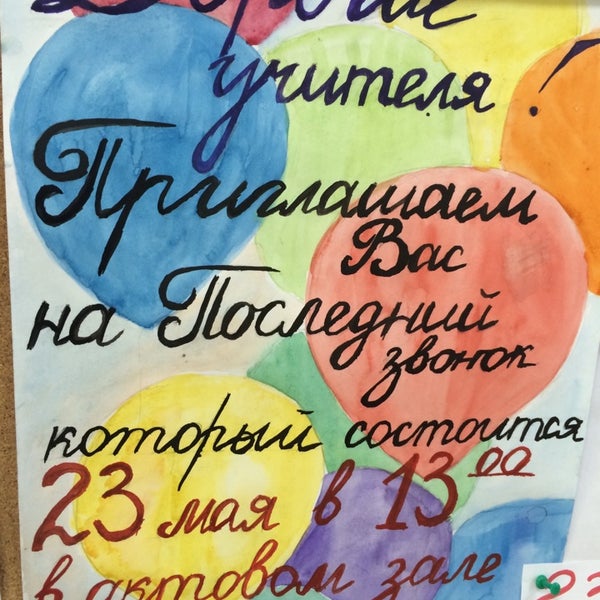 Дорогие
учителя!
Приглашаем
Вас
на Последний
звонок
который состоится
23 мая в 13⁰⁰
в актовом зале